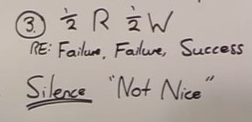 ③ ½ R ½ W
RE: Failure, Failure, Success
Silence "Not Nice"